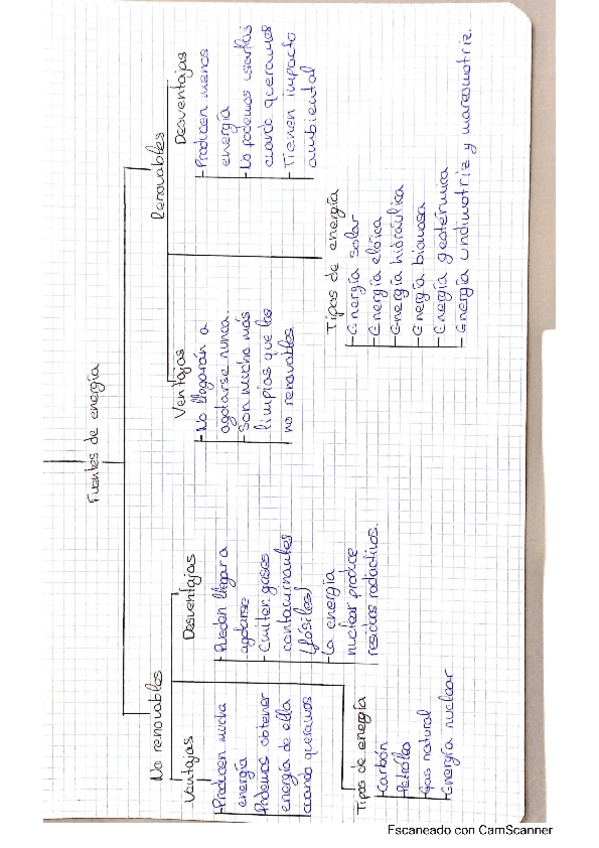 Fuentes de energía
No renovables
Ventajas
- Producen mucha
energía
- Podemos obtener
energía de ella
cuando queramos
Desventajas
- Pueden llegar a
agotarse
- Emiten gases
contaminantes
(fósiles)
- La energía
nuclear produce
residuos radactivos.
Tipos de energía
- Carbón
- Petróleo
- Gas natural
- Energía nuclear
Renovables
Ventajas
- No llegarán a
agotarse nunca
- Son mucho más
limpias que las
no renovables
Desventajas
- Producen menos
energía
- No podemos usarlas
cuando queramos
- Tienen impacto
ambiental
Tipos de energía
- Energía solar
- Energía eólica
- Energía hidráulica
- Energía biomasa
- Energía geotérmica
- Energía undimotriz y mareomotriz.
Escaneado con CamScanner